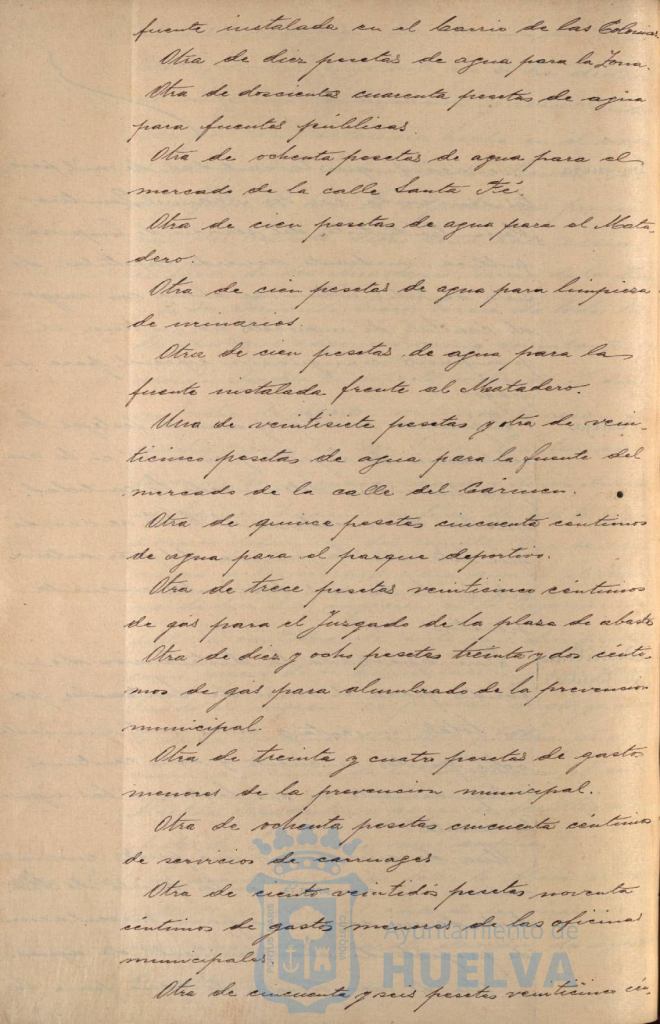 fuente instalada en el barrio de las Colonias
Otra de diez pesetas de agua para la Zona.
Otra de doscientas cuarenta pesetas de agua
para fuentes públicas.
Otra de ochenta pesetas de agua para el
mercado de la calle Santa Fé.
Otra de cien pesetas de agua para el Mata-
dero.
Otra de cien pesetas de agua para limpieza
de urinarios.
Otra de cien pesetas de agua para la
fuente instalada frente al Matadero.
Una de veintisiete pesetas y otra de vein-
ticinco pesetas de agua para la fuente del
mercado de la calle del Cármen.
Otra de quince pesetas cincuenta céntimos
de agua para el parque deportivo.
Otra de trece pesetas veinticinco céntimos
de gas para el Juzgado de la plaza de abastos
Otra de diez y ocho pesetas treinta y dos cénti-
mos de gas para alumbrado de la prevencion
municipal.
Otra de treinta y cuatro pesetas de gastos
menores de la prevencion municipal.
Otra de ochenta pesetas cincuenta céntimos
de servicios de carruages
Otra de ciento veintidós pesetas noventa
céntimos de gastos menores de las oficinas
municipales.
Otra de cincuenta y seis pesetas veinticinco cén-
Ayuntamiento de
HUELVA